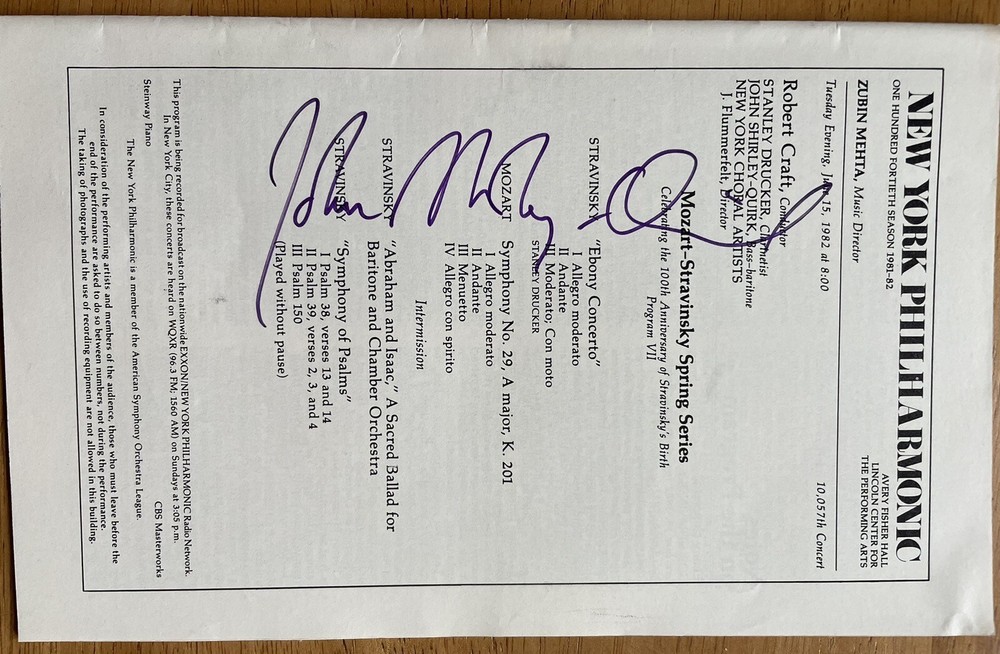 NEW YORK PHILHARMONIC
ONE HUNDRED FORTIETH SEASON 1981-82
ZUBIN MEHTA, Music Director
AVERY FISHER HALL
LINCOLN CENTER FOR
THE PERFORMING ARTS
Tuesday Evening, June 15, 1982 at 8:00
10,057th Concert
Robert Craft, Conductor
STANLEY DRUCKER, Clarinetist
JOHN SHIRLEY-QUIRK, Bass-baritone
NEW YORK CHORAL ARTISTS
J. Flummerfelt, Director
Mozart-Stravinsky Spring Series
Celebrating the 100th Anniversary of Stravinsky's Birth
Program VII
STRAVINSKY "Ebony Concerto"
I Allegro moderato
II Andante
III Moderato; Con moto
STANLEY DRUCKER
MOZART Symphony No. 29, A major, K. 201
I Allegro moderato
II Andante
III Menuetto
IV Allegro con spirito
Intermission
STRAVINSKY "Abraham and Isaac," A Sacred Ballad for
Baritone and Chamber Orchestra
STRAVINSKY "Symphony of Psalms"
I Psalm 38, verses 13 and 14
II Psalm 39, verses 2, 3, and 4
III Psalm 150
(Played without pause)
This program is being recorded for broadcast on the nationwide EXXON/NEW YORK PHILHARMONIC Radio Network.
In New York City, these concerts are heard on WQXR (96.3 FM; 1560 AM) on Sundays at 3:05 p.m.
Steinway Piano
CBS Masterworks
The New York Philharmonic is a member of the American Symphony Orchestra League.
In consideration of the performing artists and members of the audience, those who must leave before the
end of the performance are asked to do so between numbers, not during the performance.
The taking of photographs and the use of recording equipment are not allowed in this building.
John